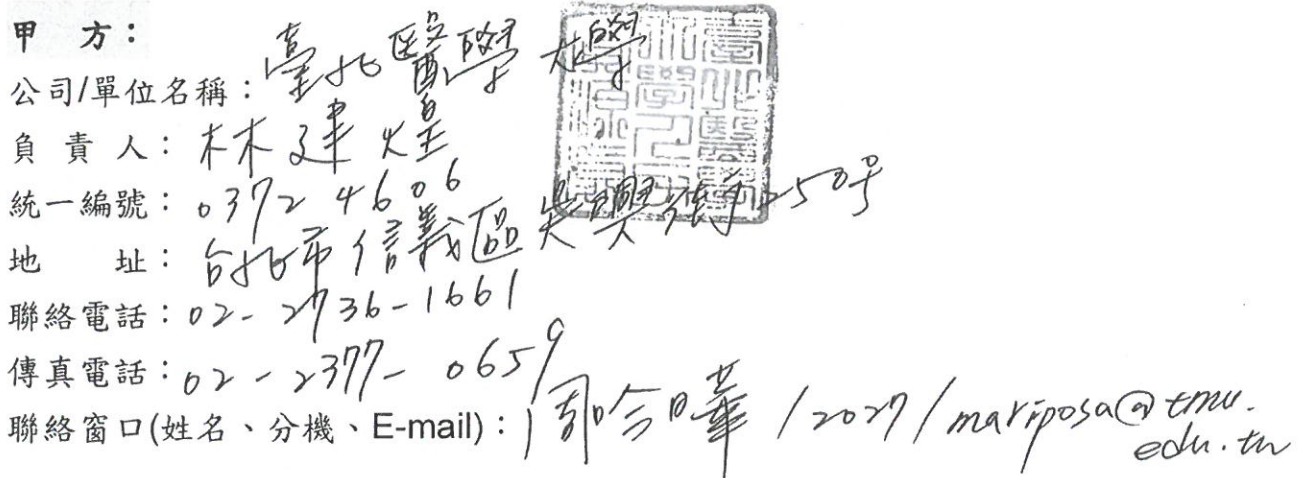 甲 方：
公司/單位名稱：臺北醫學大學
負 責 人：林建煌
統一編號：03724606
地 址：台北市信義區吳興街250号
聯絡電話：02-2736-1661
傳真電話：02-2377-0659
聯絡窗口(姓名、分機、E-mail)： /2027/mariposa@tmu.
edu.tw